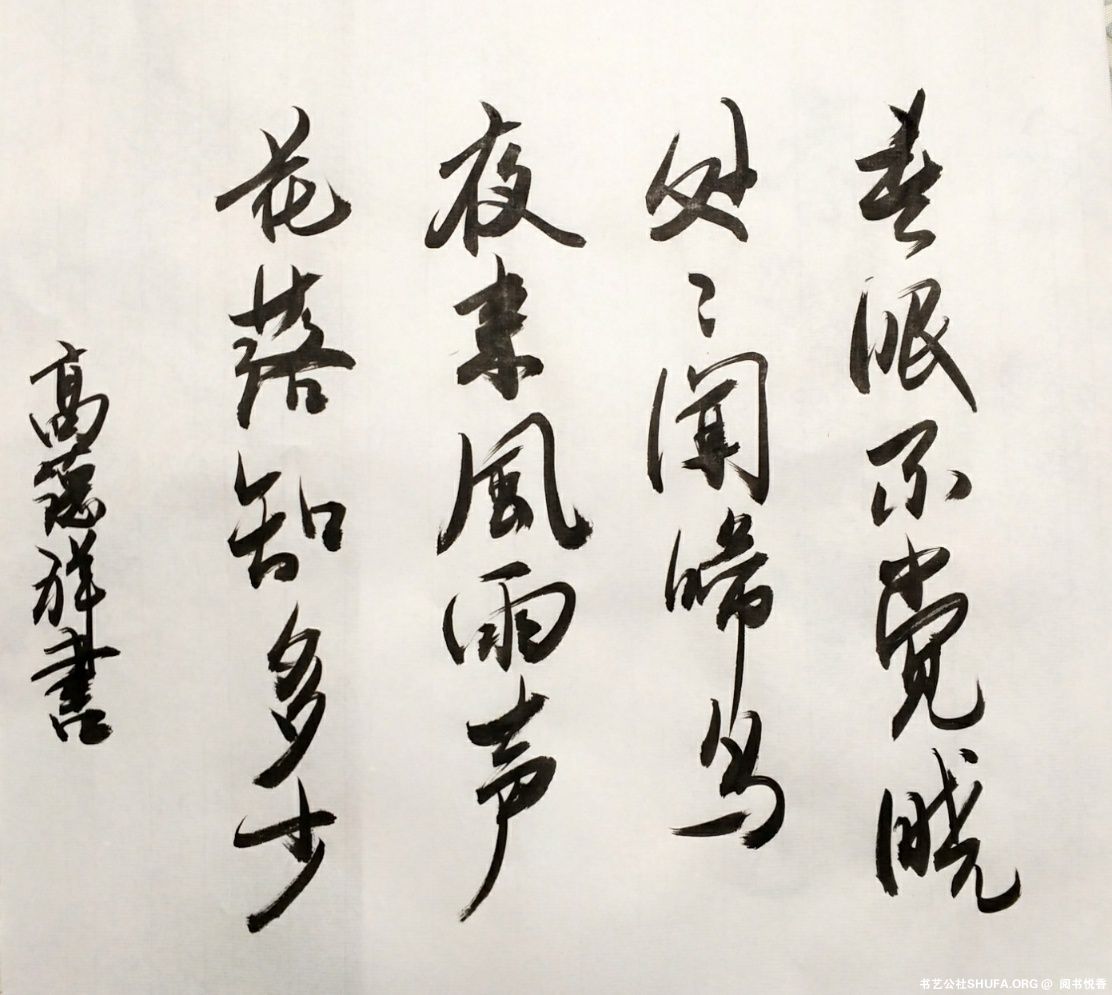 春眠不觉晓
处々闻啼鸟
夜来風雨声
花落知多少
高德祥書
书艺公社SHUFA.ORG @ 阅书悦香